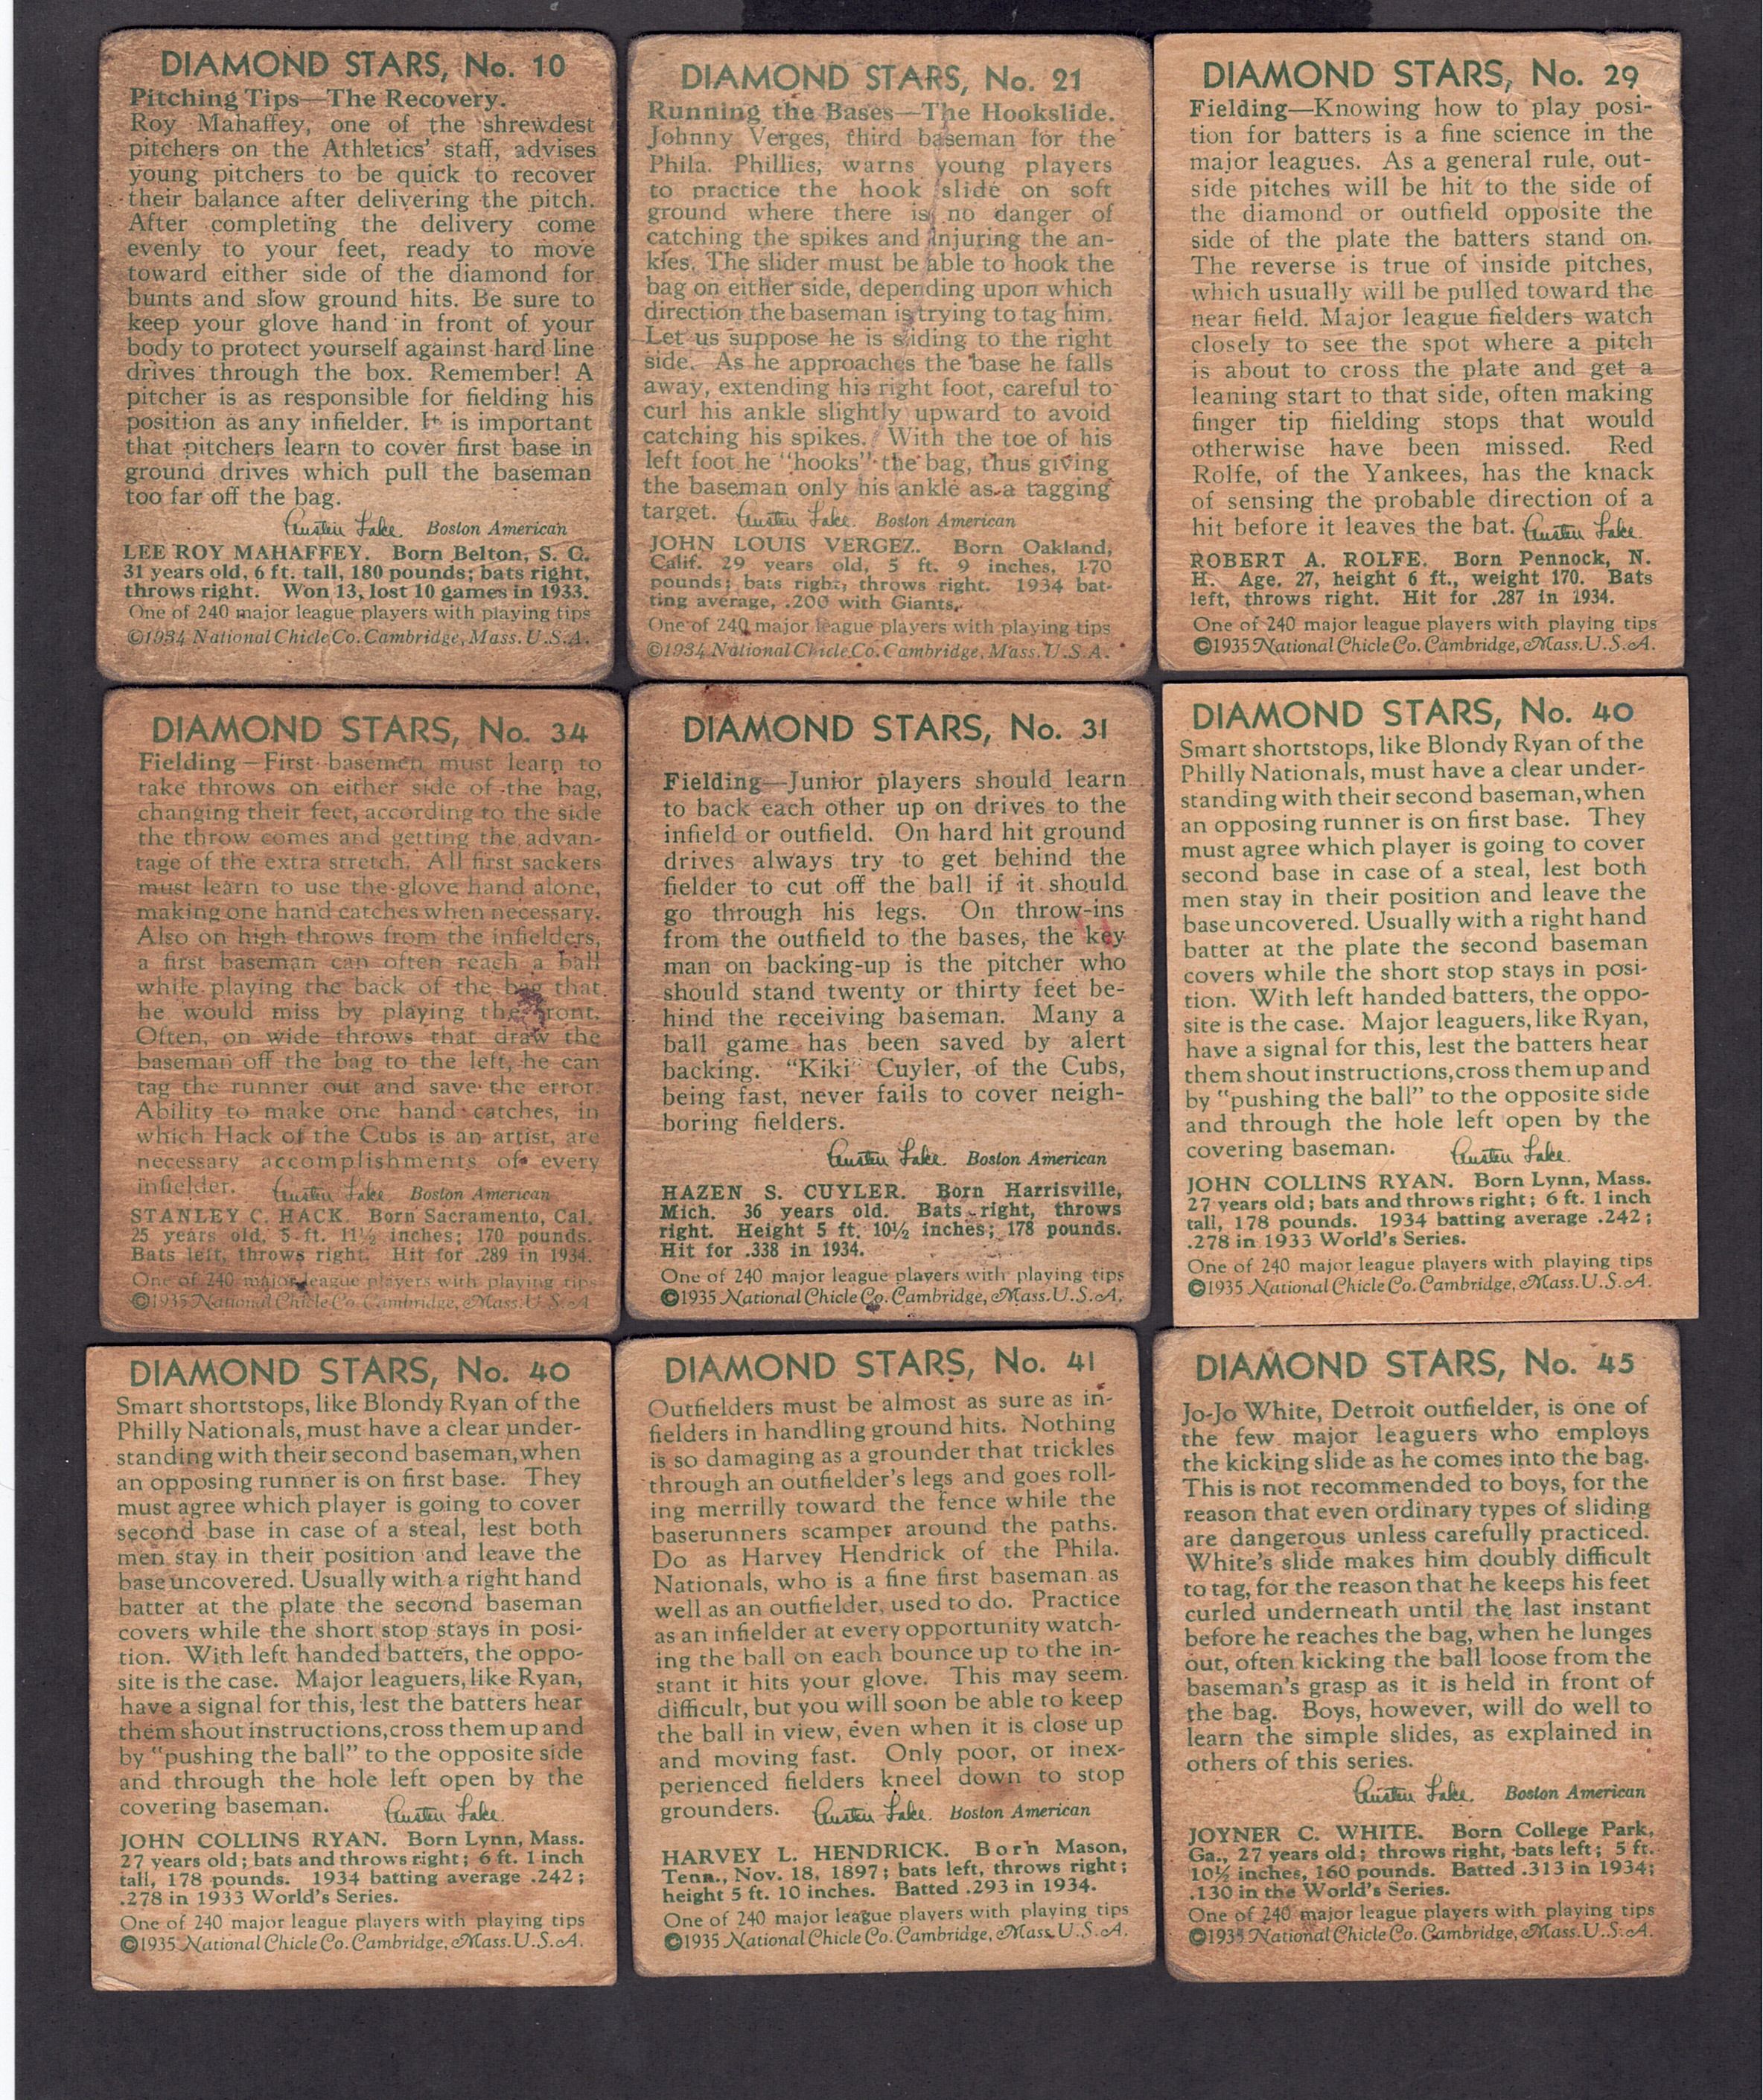 DIAMOND STARS, No. 10
Pitching Tips—The Recovery.
Roy Mahaffey, one of the shrewdest
pitchers on the Athletics' staff, advises
young pitchers to be quick to recover
their balance after delivering the pitch.
After completing the delivery come
evenly to your feet, ready to move
toward either side of the diamond for
bunts and slow ground hits. Be sure to
keep your glove hand in front of your
body to protect yourself against hard line
drives through the box. Remember! A
pitcher is as responsible for fielding his
position as any infielder. It is important
that pitchers learn to cover first base in
ground drives which pull the baseman
too far off the bag.
Austen Lake. Boston American
LEE ROY MAHAFFEY. Born Belton, S. C.
31 years old, 6 ft. tall, 180 pounds; bats right,
throws right. Won 13, lost 10 games in 1933.
One of 240 major league players with playing tips
©1934 National Chicle Co. Cambridge, Mass. U.S.A.
DIAMOND STARS, No. 21
Running the Bases—The Hookslide.
Johnny Verges, third baseman for the
Phila. Phillies, warns young players
to practice the hook slide on soft
ground where there is no danger of
catching the spikes and injuring the an-
kles. The slider must be able to hook the
bag on either side, depending upon which
direction the baseman is trying to tag him.
Let us suppose he is sliding to the right
side. As he approaches the base he falls
away, extending his right foot, careful to
curl his ankle slightly upward to avoid
catching his spikes. With the toe of his
left foot he "hooks" the bag, thus giving
the baseman only his ankle as a tagging
target. Austen Lake. Boston American
JOHN LOUIS VERGEZ. Born Oakland,
Calif. 29 years old, 5 ft. 9 inches, 170
pounds; bats right, throws right. 1934 bat-
ting average, .200 with Giants.
One of 240 major league players with playing tips
©1934 National Chicle Co. Cambridge, Mass. U.S.A.
DIAMOND STARS, No. 29
Fielding—Knowing how to play posi-
tion for batters is a fine science in the
major leagues. As a general rule, out-
side pitches will be hit to the side of
the diamond or outfield opposite the
side of the plate the batters stand on.
The reverse is true of inside pitches,
which usually will be pulled toward the
near field. Major league fielders watch
closely to see the spot where a pitch
is about to cross the plate and get a
leaning start to that side, often making
finger tip fiielding stops that would
otherwise have been missed. Red
Rolfe, of the Yankees, has the knack
of sensing the probable direction of a
hit before it leaves the bat. Austen Lake.
ROBERT A. ROLFE. Born Pennock, N.
H. Age. 27, height 6 ft., weight 170. Bats
left, throws right. Hit for .287 in 1934.
One of 240 major league players with playing tips
©1935 National Chicle Co. Cambridge, Mass. U.S.A.
DIAMOND STARS, No. 34
Fielding—First basemen must learn to
take throws on either side of the bag,
changing their feet, according to the side
the throw comes and getting the advan-
tage of the extra stretch. All first sackers
must learn to use the glove hand alone,
making one hand catches when necessary.
Also on high throws from the infielders,
a first baseman can often reach a ball
while playing the back of the bag that
he would miss by playing the front.
Often, on wide throws that draw the
baseman off the bag to the left, he can
tag the runner out and save the error.
Ability to make one hand catches, in
which Hack of the Cubs is an artist, are
necessary accomplishments of every
infielder. Austen Lake. Boston American
STANLEY C. HACK. Born Sacramento, Cal.
25 years old, 5 ft. 11½ inches; 170 pounds.
Bats left, throws right. Hit for .289 in 1934.
One of 240 major league players with playing tips
©1935 National Chicle Co. Cambridge, Mass. U.S.A
DIAMOND STARS, No. 31
Fielding—Junior players should learn
to back each other up on drives to the
infield or outfield. On hard hit ground
drives always try to get behind the
fielder to cut off the ball if it should
go through his legs. On throw-ins
from the outfield to the bases, the key
man on backing-up is the pitcher who
should stand twenty or thirty feet be-
hind the receiving baseman. Many a
ball game has been saved by alert
backing. "Kiki" Cuyler, of the Cubs,
being fast, never fails to cover neigh-
boring fielders.
Austen Lake. Boston American
HAZEN S. CUYLER. Born Harrisville,
Mich. 36 years old. Bats right, throws
right. Height 5 ft. 10½ inches; 178 pounds.
Hit for .338 in 1934.
One of 240 major league players with playing tips
©1935 National Chicle Co. Cambridge, Mass. U.S.A.
DIAMOND STARS, No. 40
Smart shortstops, like Blondy Ryan of the
Philly Nationals, must have a clear under-
standing with their second baseman, when
an opposing runner is on first base. They
must agree which player is going to cover
second base in case of a steal, lest both
men stay in their position and leave the
base uncovered. Usually with a right hand
batter at the plate the second baseman
covers while the short stop stays in posi-
tion. With left handed batters, the oppo-
site is the case. Major leaguers, like Ryan,
have a signal for this, lest the batters hear
them shout instructions, cross them up and
by "pushing the ball" to the opposite side
and through the hole left open by the
covering baseman. Austen Lake.
JOHN COLLINS RYAN. Born Lynn, Mass.
27 years old; bats and throws right; 6 ft. 1 inch
tall, 178 pounds. 1934 batting average .242;
.278 in 1933 World's Series.
One of 240 major league players with playing tips
©1935 National Chicle Co. Cambridge, Mass. U.S.A.
DIAMOND STARS, No. 40
Smart shortstops, like Blondy Ryan of the
Philly Nationals, must have a clear under-
standing with their second baseman, when
an opposing runner is on first base. They
must agree which player is going to cover
second base in case of a steal, lest both
men stay in their position and leave the
base uncovered. Usually with a right hand
batter at the plate the second baseman
covers while the short stop stays in posi-
tion. With left handed batters, the oppo-
site is the case. Major leaguers, like Ryan,
have a signal for this, lest the batters hear
them shout instructions, cross them up and
by "pushing the ball" to the opposite side
and through the hole left open by the
covering baseman. Austen Lake.
JOHN COLLINS RYAN. Born Lynn, Mass.
27 years old; bats and throws right; 6 ft. 1 inch
tall, 178 pounds. 1934 batting average .242;
.278 in 1933 World's Series.
One of 240 major league players with playing tips
©1935 National Chicle Co. Cambridge, Mass. U.S.A.
DIAMOND STARS, No. 41
Outfielders must be almost as sure as in-
fielders in handling ground hits. Nothing
is so damaging as a grounder that trickles
through an outfielder's legs and goes roll-
ing merrilly toward the fence while the
baserunners scamper around the paths.
Do as Harvey Hendrick of the Phila.
Nationals, who is a fine first baseman as
well as an outfielder, used to do. Practice
as an infielder at every opportunity watch-
ing the ball on each bounce up to the in-
stant it hits your glove. This may seem
difficult, but you will soon be able to keep
the ball in view, even when it is close up
and moving fast. Only poor, or inex-
perienced fielders kneel down to stop
grounders. Austen Lake. Boston American
HARVEY L. HENDRICK. Born Mason,
Tenn., Nov. 18, 1897; bats left, throws right;
height 5 ft. 10 inches. Batted .293 in 1934.
One of 240 major league players with playing tips
©1935 National Chicle Co. Cambridge, Mass. U.S.A.
DIAMOND STARS, No. 45
Jo-Jo White, Detroit outfielder, is one of
the few major leaguers who employs
the kicking slide as he comes into the bag.
This is not recommended to boys, for the
reason that even ordinary types of sliding
are dangerous unless carefully practiced.
White's slide makes him doubly difficult
to tag, for the reason that he keeps his feet
curled underneath until the last instant
before he reaches the bag, when he lunges
out, often kicking the ball loose from the
baseman's grasp as it is held in front of
the bag. Boys, however, will do well to
learn the simple slides, as explained in
others of this series.
Austen Lake. Boston American
JOYNER C. WHITE. Born College Park,
Ga., 27 years old; throws right, bats left; 5 ft.
10½ inches, 160 pounds. Batted .313 in 1934;
.130 in the World's Series.
One of 240 major league players with playing tips
©1935 National Chicle Co. Cambridge, Mass. U.S.A.